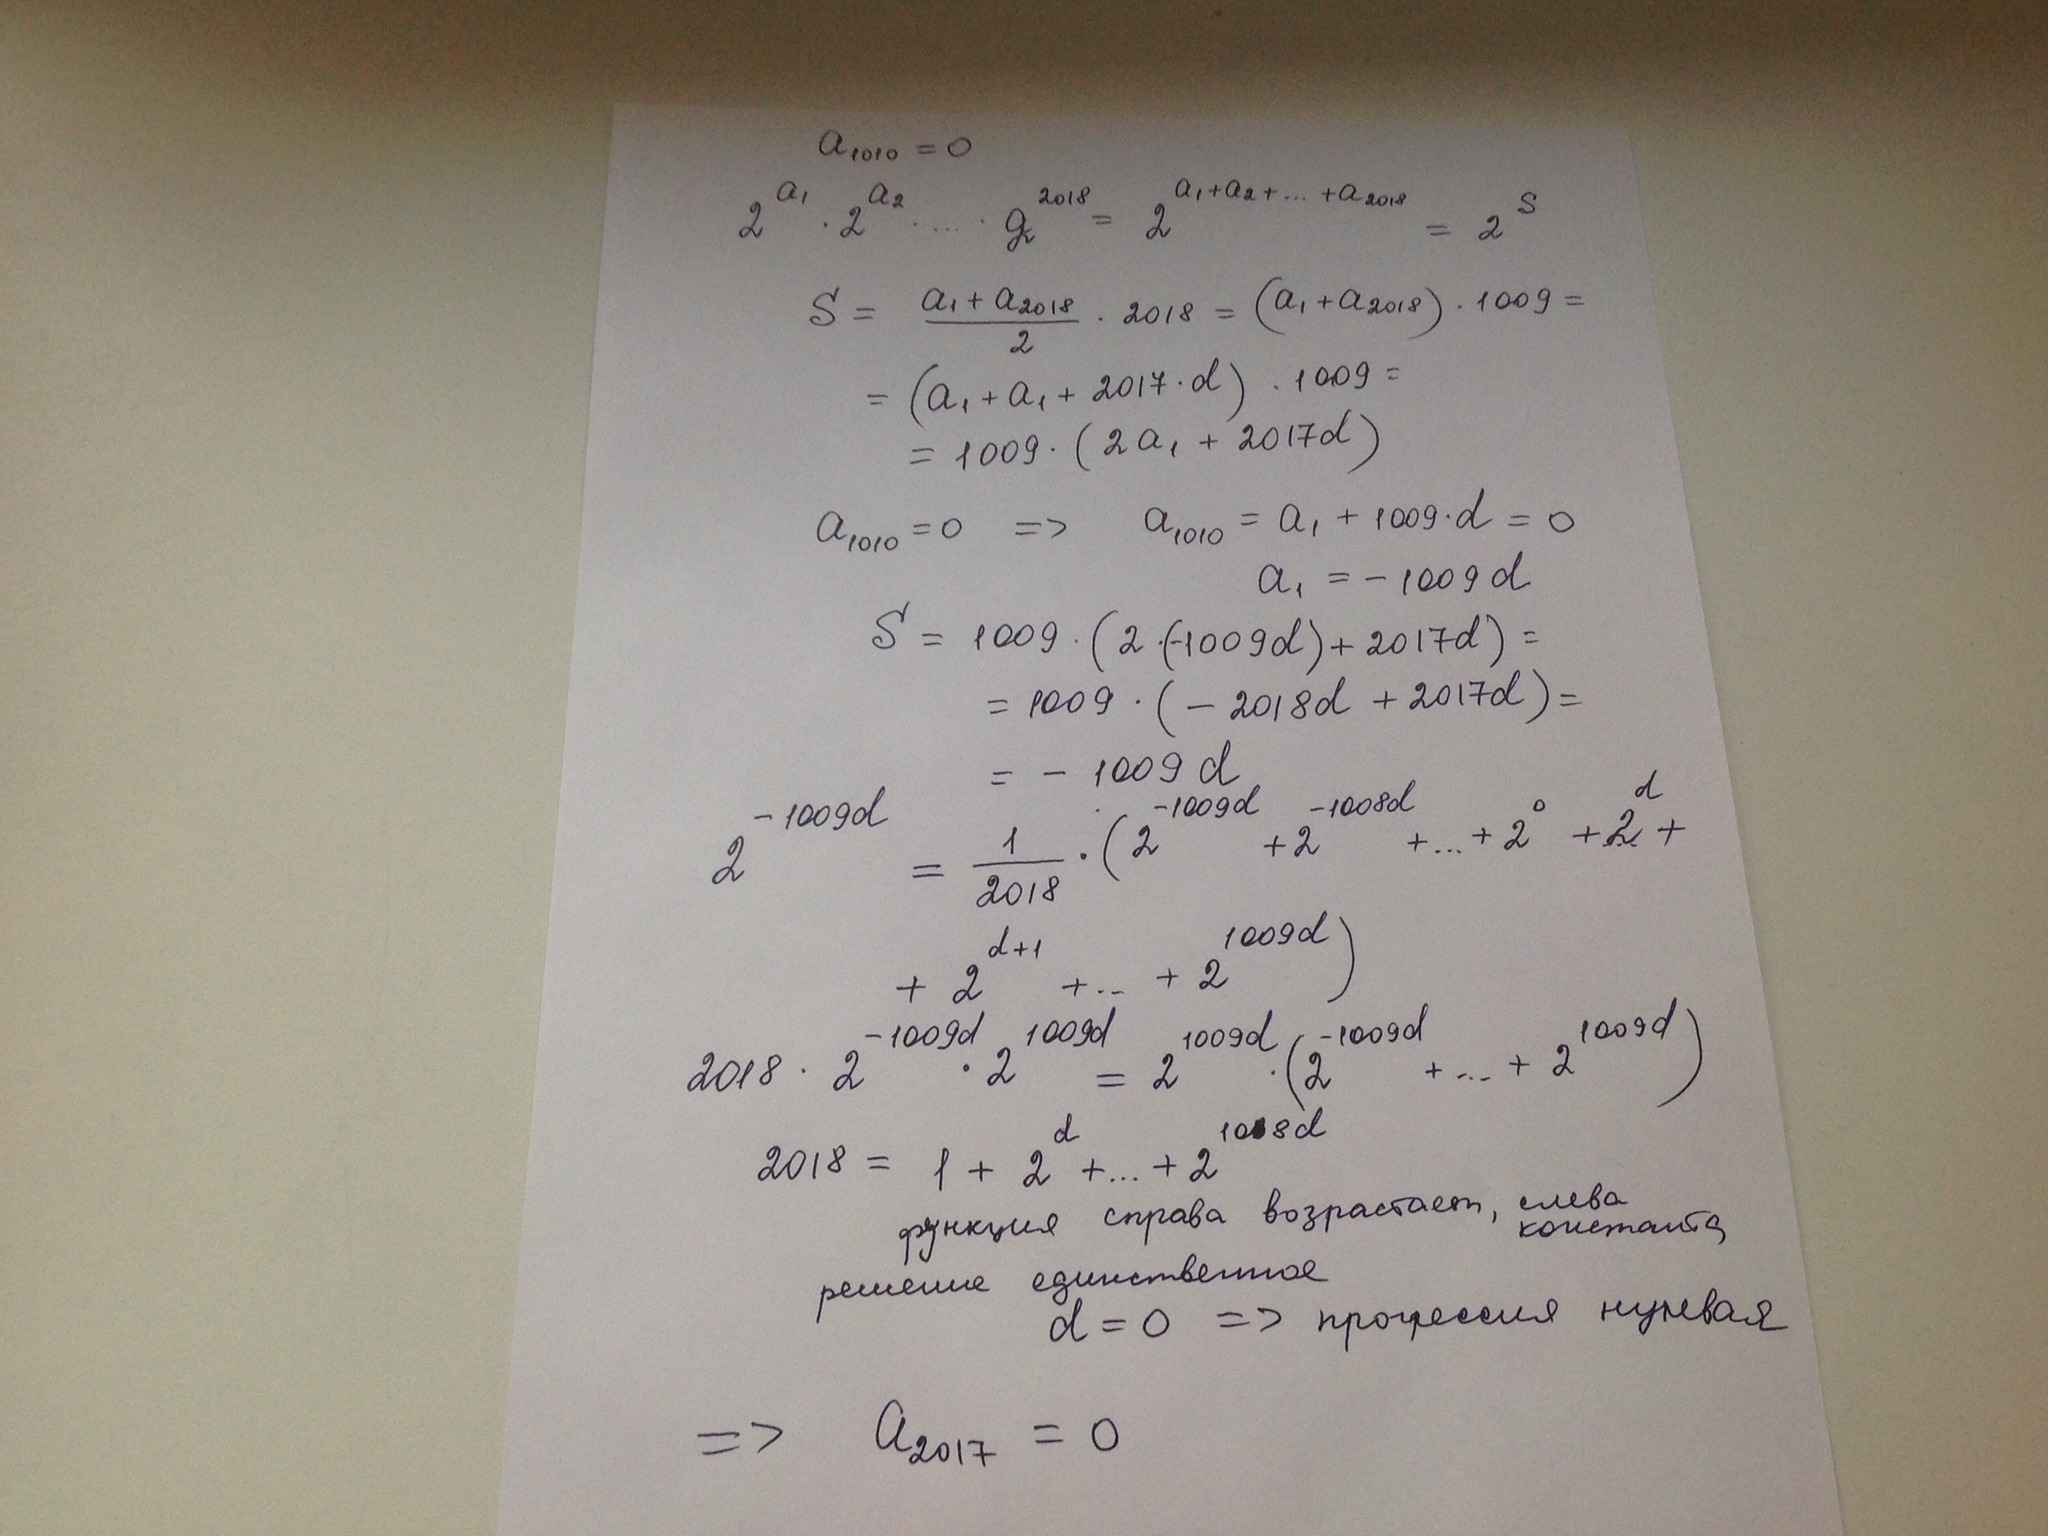 a₁₀₁₀ = 0
2^{a₁} · 2^{a₂} · ... · 2^{2018} = 2^{a₁+a₂+...+a₂₀₁₈} = 2^S
S = (a₁ + a₂₀₁₈)/2 · 2018 = (a₁ + a₂₀₁₈) · 1009 =
= (a₁ + a₁ + 2017 · d) · 1009 =
= 1009 · (2a₁ + 2017d)
a₁₀₁₀ = 0 => a₁₀₁₀ = a₁ + 1009 · d = 0
a₁ = - 1009d
S = 1009 · (2 · (-1009d) + 2017d) =
= 1009 · (- 2018d + 2017d) =
= - 1009d
2^{-1009d} = 1/2018 · (2^{-1009d} + 2^{-1008d} + ... + 2^0 + 2^d +
+ 2^{d+1} + ... + 2^{1009d})
2018 · 2^{-1009d} · 2^{1009d} = 2^{1009d} · (2^{-1009d} + ... + 2^{1009d})
2018 = 1 + 2^d + ... + 2^{1018d}
функция справа возрастает, слева константа
решение единственное
d = 0 => прогрессия нулевая
=> a₂₀₁₇ = 0